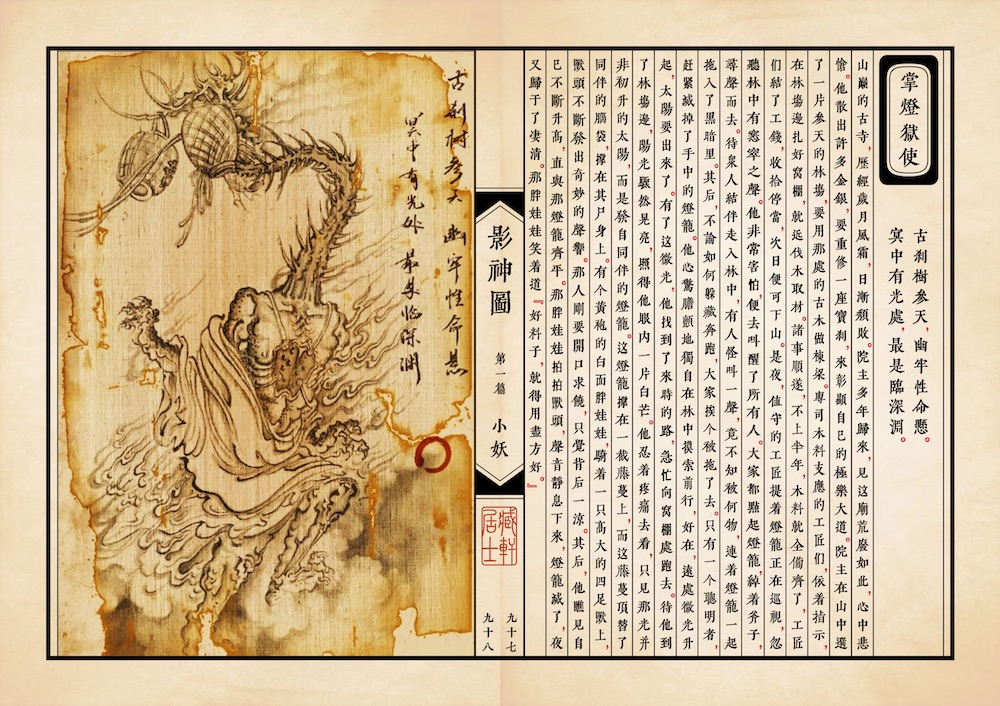 掌燈獄使
古刹樹參天,幽牢性命懸。
冥中有光處,最是臨深淵。
山巖的古寺,歷經歲月風霜,日漸頹敗。院主多年歸來,見這廟荒廢如此,心中悲
愴。他散出許多金銀,要重修一座寶刹,來彰顯自己的極樂大道。院主在山中選
了一片參天的林場,要用那處的古木做棟梁。專司木料支應的工匠們,依着指示,
在林場邊扎好窩棚,就延伐木取材。諸事順遂,不上半年,木料就全備齊了,工匠
們結了工錢,收拾停當,次日便可下山。是夜,值守的工匠提着燈籠正在巡視,忽
聽林中有窸窣之聲。他非常害怕,便去叫醒了所有人。大家都點起燈籠,綽着斧子,
尋聲而去。待衆人結伴走入林中,有人怪叫一聲,竟不知被何物,連着燈籠一起
拖入了黑暗里。其后,不論如何躲藏奔跑,大家挨个被拖了去。只有一个聰明者,
赶緊滅掉了手中的燈籠。他心驚膽顫地獨自在林中摸索前行,好在,遠處微光升
起,太陽要出來了。有了這微光,他找到了來時的路,急忙向窩棚處跑去。待他到
了林場邊,陽光驟然晃亮,照得他眼内一片白芒。他忍着疼痛去看,只見那光并
非初升的太陽,而是發自同伴的燈籠。這燈籠撑在一截藤蔓上,而这藤蔓頂替了
同伴的腦袋,撑在其尸身上。有个黄袍的白面胖娃娃,騎着一只高大的四足獸上,
獸頭不斷發出奇妙的聲響。那人剛要開口求饒,只覺背后一凉。其后,他瞧見自
已不斷升高,直與那燈籠齊平。那胖娃娃拍拍獸頭,聲音靜息下來,燈籠滅了,夜
又歸于了凄清。那胖娃娃笑着道『好料子,就得用盡方好。』
影神圖
第一篇
小妖
藏軒居士
九十七
九十八
古刹樹參天 幽牢性命懸
冥中有光处 最是临深渊